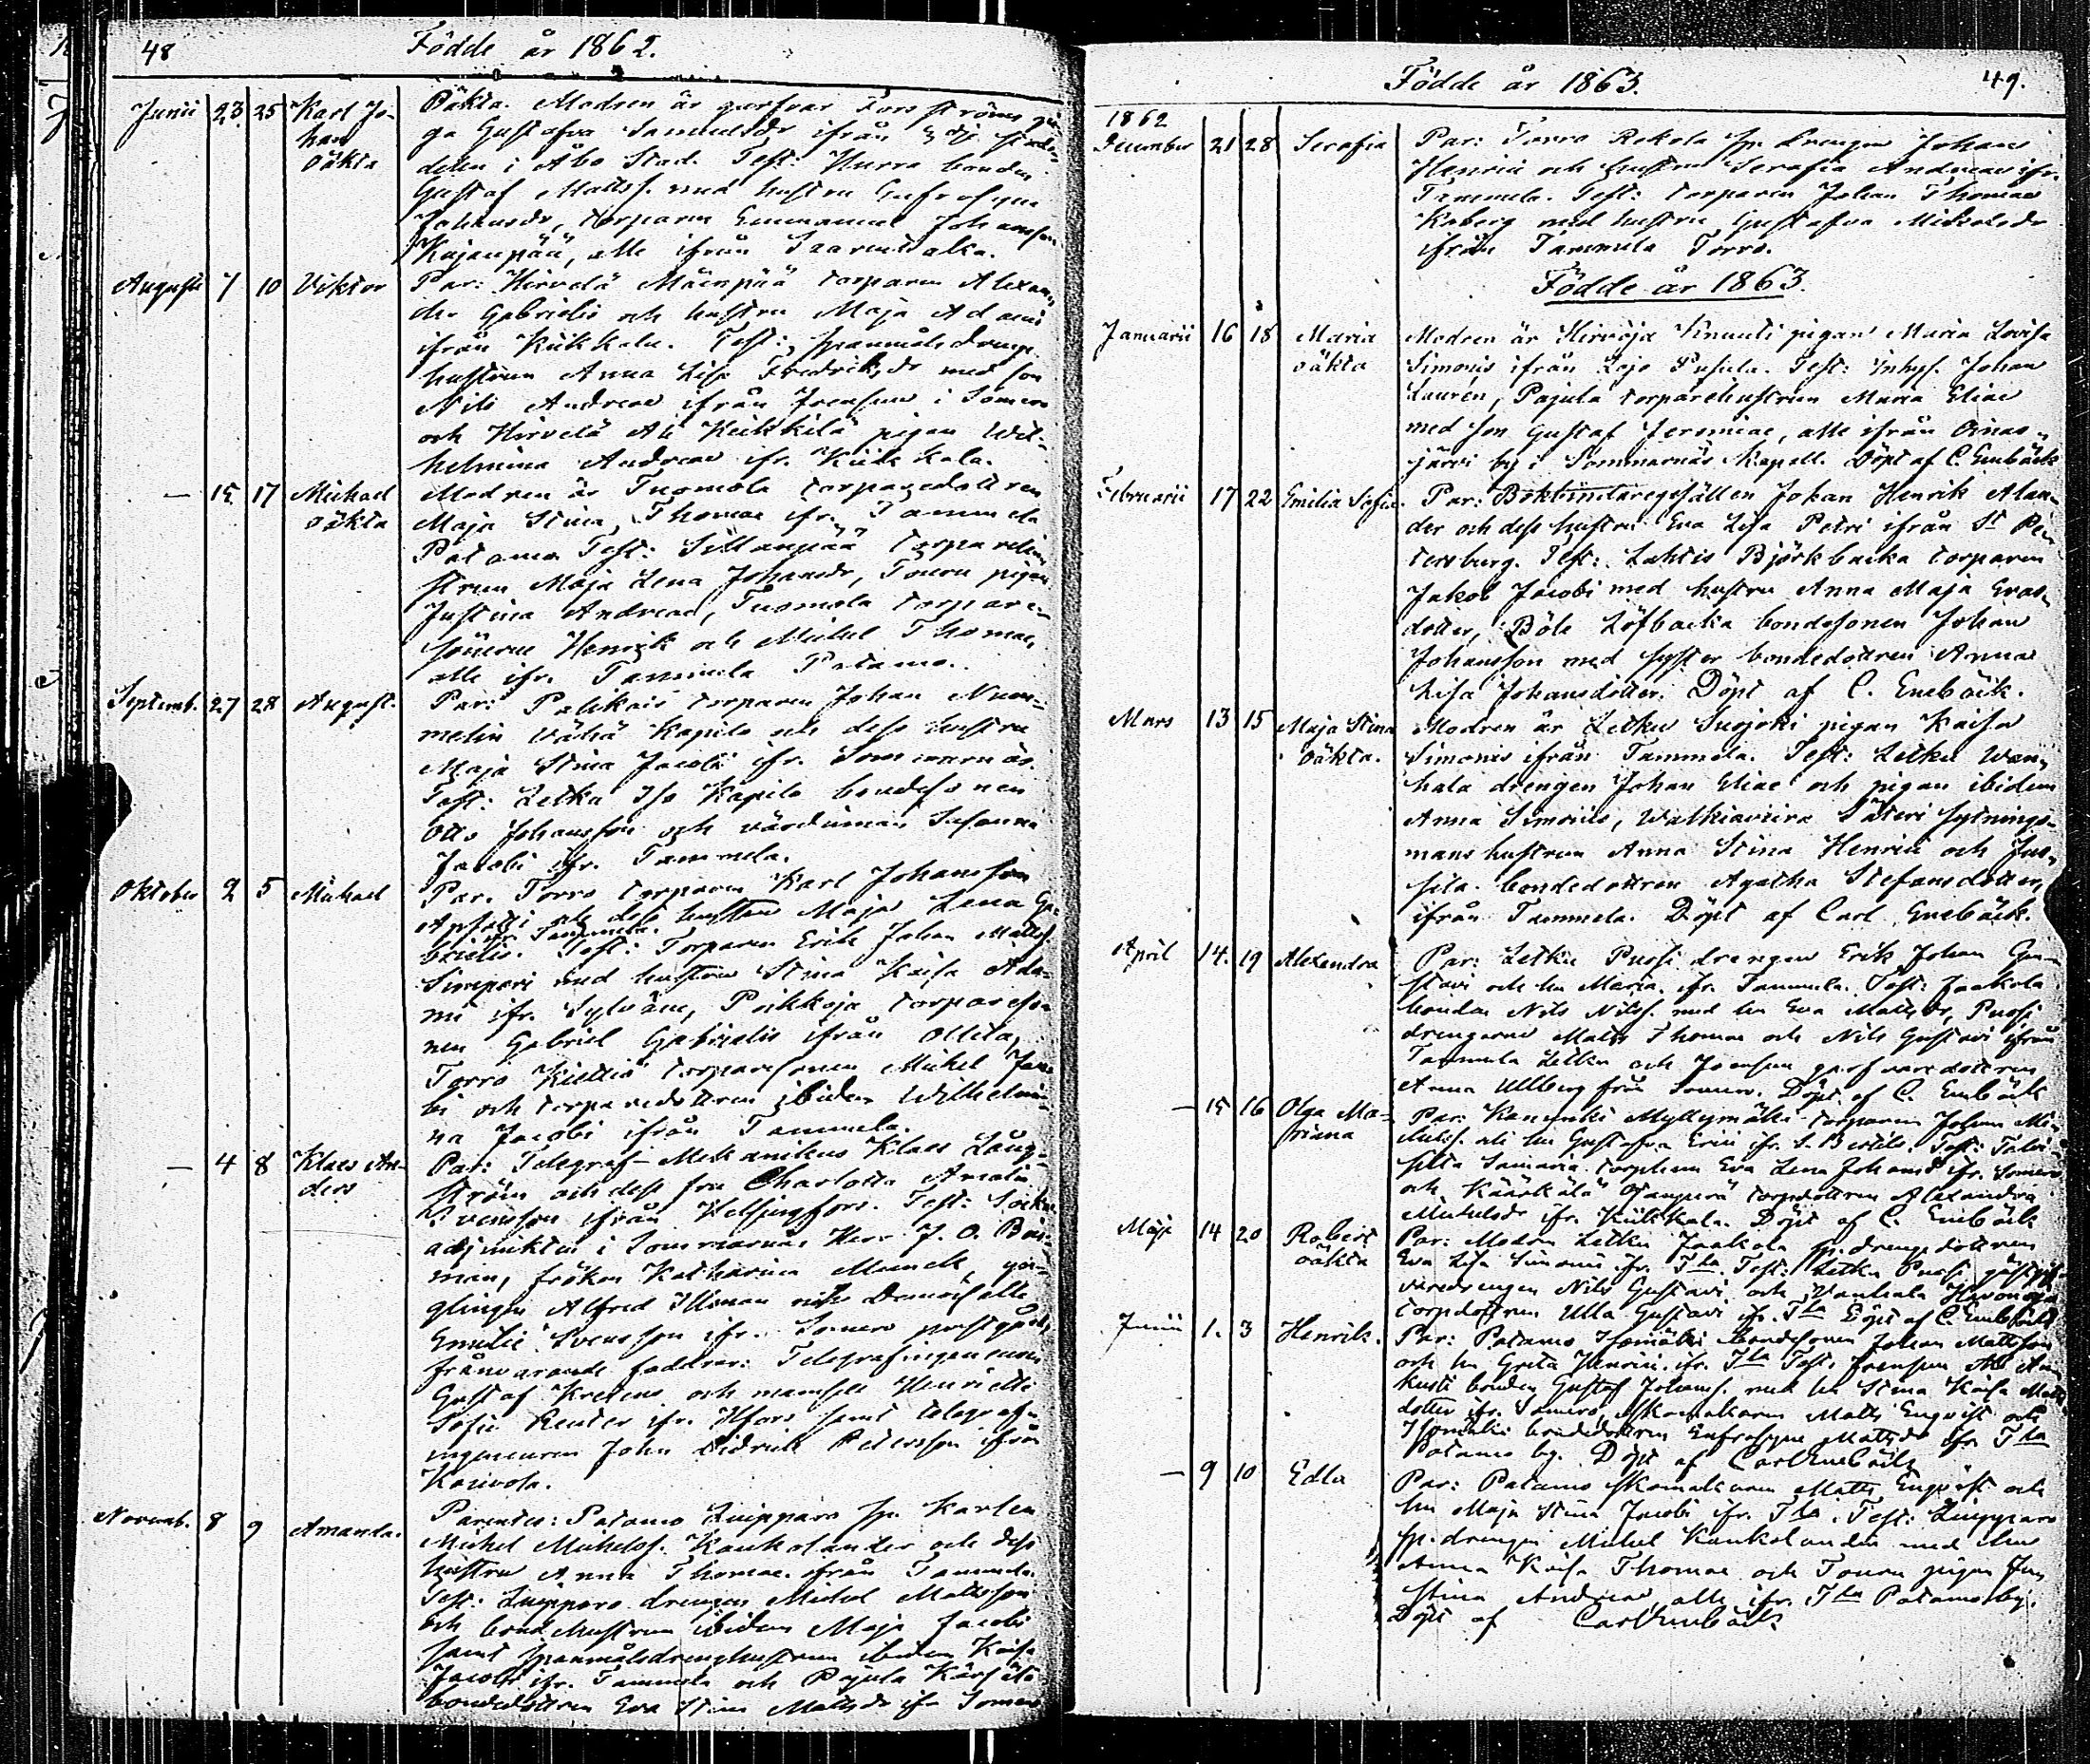 48
Födde år 1862.
Junii 23 25 Karl Jo-
han
oäkta
Oäkta. Modren är garfvar Forsströms pi-
ga Gustafva Samuelsdr ifrån
delen i Åbo Stad. Test: Hurra bonden
Gustaf Mattss. med hustru Eufrosyna
Johansdr, torparen Emmanuel Johansson
Kajanpää, alle ifrån
Augusti 7 10 Viktor
Par: Hirvelä Mäenpää torparen Alexan-
der Gabrielis och hustru Maja Adami
ifrån Kiikkala. Test: spanmåls drenge
hustrun Anna Lisa Fredriksdr med son
Nils Andreae ifrån Joensuu i Somero
och Hirvelä Ali Keikkilä pigan Wil-
helmina Andreae ifr. Kiikkala.
— 15 17 Michael
oäkta
Modren är Tuomola torparedottren
Maja Stina Thomae ifr. Tammela
Patamo Test: Sillanpää torparehu-
strun Maja Lena Johansdr, Touru pigan
Justina Andreae, Tuomola torpare-
sönerne Henrik och Michel Thomae,
alle ifr. Tammela Patamo.
Septemb. 27 28 August.
Par: Palikais torparen Johan Num-
melin Vähä Kapilo och dess hustru
Maja Stina Jacobi ifr. Sommarnäs.
Test: Letku Iso Kapilo bondesonen
Otto Johansson och värdinnan Susanna
Jacobi ifr. Tammela.
Oktober 2 5 Michael
Par. Torro torparen Karl Johansson
och dess hustru Maja Lena Ga-
ifr Tammela.
brielis. Test: Torparen Erik Johan Mattss.
Simpari med hustru Stina Kaisa Ada-
mi ifr. Sylvänä, Poikkoja torpareso-
nen Gabriel Gabrielis ifrån Ollila,
Torro torparesonen Michel Jaco-
bi och torparedottren ibidem Wilhelmi-
na Jacobi ifrån Tammela.
— 4 8 Klaes An-
ders
Par: Telegraf-Mekanikus Klaes Lång-
ström och dess fru Charlotta Amalia
Svensson ifrån Helsingfors. Test: Socken
adjunkten i Sommarnäs Herr J. O. Ber-
man, fröken Katharina Munck, yn-
glingen Alfred Illman och Demoiselle
Emilie Svensson ifr. Somero prestgård,
frånvarande faddrar: Telegrafingenieuren
Gustaf och mamsell Henriette
Sofie Reuter ifr. Hfors samt telegraf-
ingenieuren John Didrick Petersson ifrån
Novemb. 8 9 Amanda.
Parentes: Patamo Luipparo sp. karlen
Michel Michelss. Kankolander och dess
hustru Anna Thomae ifrån Tammela.
Test. Luipparo drengen Michel Mattsson
och bondehustrun ibidem Maja Jacobi
samt spanmålsdrenghustrun ibidem Kaisa
Jacobi ifr. Tammela och Pajula Kärsälä
bondedottren Eva Stina Mattsdr ifr Somero
Födde år 1863.
49.
1862
December 21 28 Serafia
Par: Torro Rekola sp. drengen Johan
Henrici och hustru Serafia Andreae ifr.
Tammela. Test: torparen Johan Thomae
Koberg med hustru Gustafva Michelsdr
ifrån Tammela Torro.
Födde år 1863.
Januarii 16 18 Maria
oäkta
Modren är Hirvioja Knuuti pigan Maria Lovisa
Simonis ifrån Lojo Pusula. Test: Inhys. Johan
Laurén, Pajula torparehustrun Maria Eliae
med son Gustaf Jeremiae, alle ifrån Oinas-
järvi by i Sommarnäs Kapell. Döpt af C. Enebäck
Februarii 17 22 Emilia Sofia.
Par: Bokbindaregesällen Johan Henrik Alan-
der och dess hustru Eva Lisa Petri ifrån St Pe-
tersburg. Test: Lahtis Björkbacka torparen
Jakob Jacobi med hustru Anna Maja Eras-
dotter, Böle Löfbacka bondesonen Johan
Johansson med syster bondedottren Anna
Lisa Johansdotter. Döpt af C. Enebäck.
Mars 13 15 Maja Stina
oäkta.
Modren är Letku Suojoki pigan Kaisa
Simonis ifrån Tammela. Test: Letku Wan-
hala drengen Johan Eliae och pigan ibidem
Anna Simonis, Walkiavuira Säteri sytnings-
mans hustrun Anna Stina Henrici och Jus-
sila bondedottren Agatha Stefansdotter,
ifrån Tammela. Döpt af Carl Enebäck.
April 14. 19 Alexandra
Par: Letku Pussi drengen Erik Johan Gu-
stavi och hu Maria, ifr. Tammela. Test: Jaakola
bonden Nils Nilss. med hu Eva Mattsdr, Pussi
drengarne Matts Thomae och Nils Gustavi ifrån
Tammela Letku och Joensuu garfvaredottren
Anna Ullberg från Somero. Döpt af C. Enebäck
— 15 16 Olga Ma-
riana
Par: Myllymäki torparen Johan Mi-
chelss. och hu Gustafva Erici ifr. Test:
Samaria torphun Eva Lena Johansd ifr. Somero
och Käärkälä Ojanperä torpdottren Alexandra
Michelsdr ifr. Kiikkala. Döpt af C. Enebäck
Maji 14 20 Robert
oäkta
Par: Modren Letku Jaakola sp. drenge dottren
Eva Lisa Simonis ifr. Tla. Test: Letku Pussi gästgif-
varedrengen Nils Gustavi och Vanhala
torpdottren Ulla Gustavi ifr. Tla Döpt af C. Enebäck
Junii 1. 3 Henrik.
Par: Patamo Isomäki bondesonen Johan Mattsson
och hu Greta Henrici ifr. Tla Test: Joensuu
bonden Gustaf Johanss. med hu Stina Kaisa Matts-
dotter ifr. Somero, skomakaren Matts Enqvist och
Isomäki bondedottren Eufrosyne Mattsdr ifr Tla
Patamo by. Döpt af Carl Enebäck
— 9 10 Edla
Par: Patamo skomakaren Matts Enqvist och
hu Maja Stina Jacobi ifr. Tla. Test: Luipparo
sp. drengen Michel Kankolander med hu
Anna Kaisa Thomae och Touru pigan Ju-
stina Andreae, alle ifr. Tla Patamo by.
Döpt af Carl Enebäck